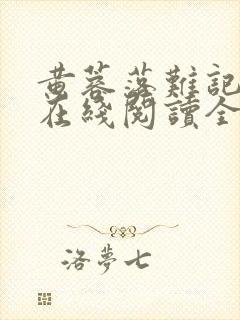 黄蓉落難記
在綫閱讀全
洛夢七